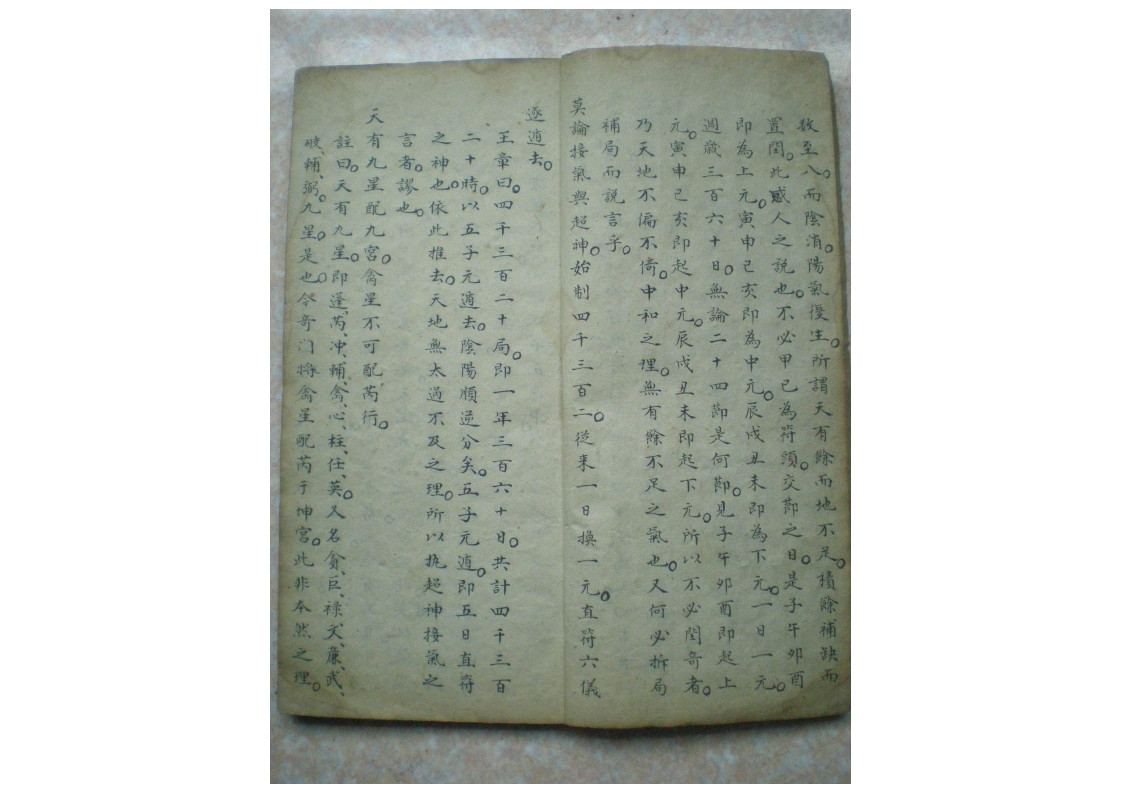 數至八。而陰消。陽氣復生。所謂天有餘而地不足。積餘補缺而
置閏。此惑人之說也。不必甲己為符頭。交節之日。是子午卯酉
即為上元。寅申己亥即為中元。辰戌丑未即為下元。一日一元。
週歲三百六十日。無論二十四節是何節。見子午卯酉即起上
元。寅申己亥即起中元。辰戌丑未即起下元。所以不必閏奇者。
乃天地不偏不倚。中和之理。無有餘不足之氣也。又何必拆局
補局而說言乎。
莫論接氣與超神。始制四千三百二。從来一日換一元。直符六儀
逐遁去。
王章曰。四千三百二十局。即一年三百六十日。共計四千三百
二十時。以五子元遁去。陰陽順逆分矣。五子元遁。即五日直符
之神也。依此推去。天地無太過不及之理。所以执超神接氣之
言者。謬也。
天有九星配九宮。禽星不可配芮行。
註曰。天有九星。即逢、芮、冲、輔、禽、心、柱、任、英。又名貪、巨、祿、文、廉、武、
破、輔、弼。九星。是也。今奇门将禽星配芮于坤宮。此非本然之理。